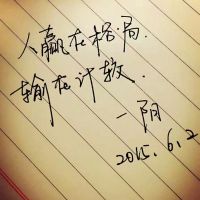 人赢在格局.
输在计较.
一阳
2015.6.2